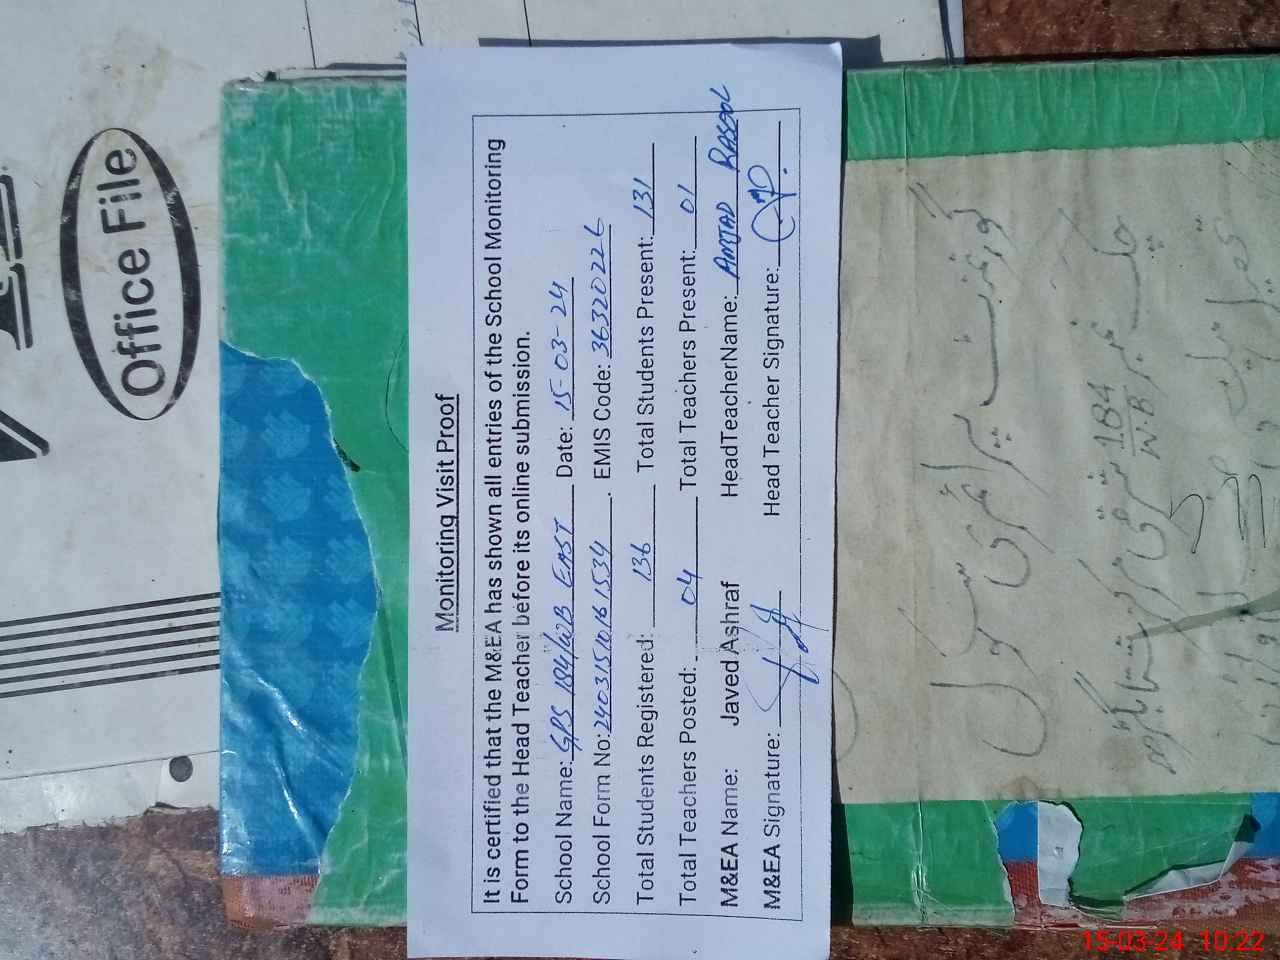 Office File
Monitoring Visit Proof
It is certified that the M&EA has shown all entries of the School Monitoring
Form to the Head Teacher before its online submission.
School Name: GPS 184/WB EAST Date: 15-03-24
School Form No: 24031510161534 . EMIS Code: 36320226
Total Students Registered: 136 Total Students Present: 131
Total Teachers Posted: 04 Total Teachers Present: 01
M&EA Name: Javed Ashraf HeadTeacherName: AMJAD RASOOL
M&EA Signature: Head Teacher Signature:
گورنمنٹ پرائمری سکول
چک نمبر 184 W.B شرقی
15-03-24 10:22